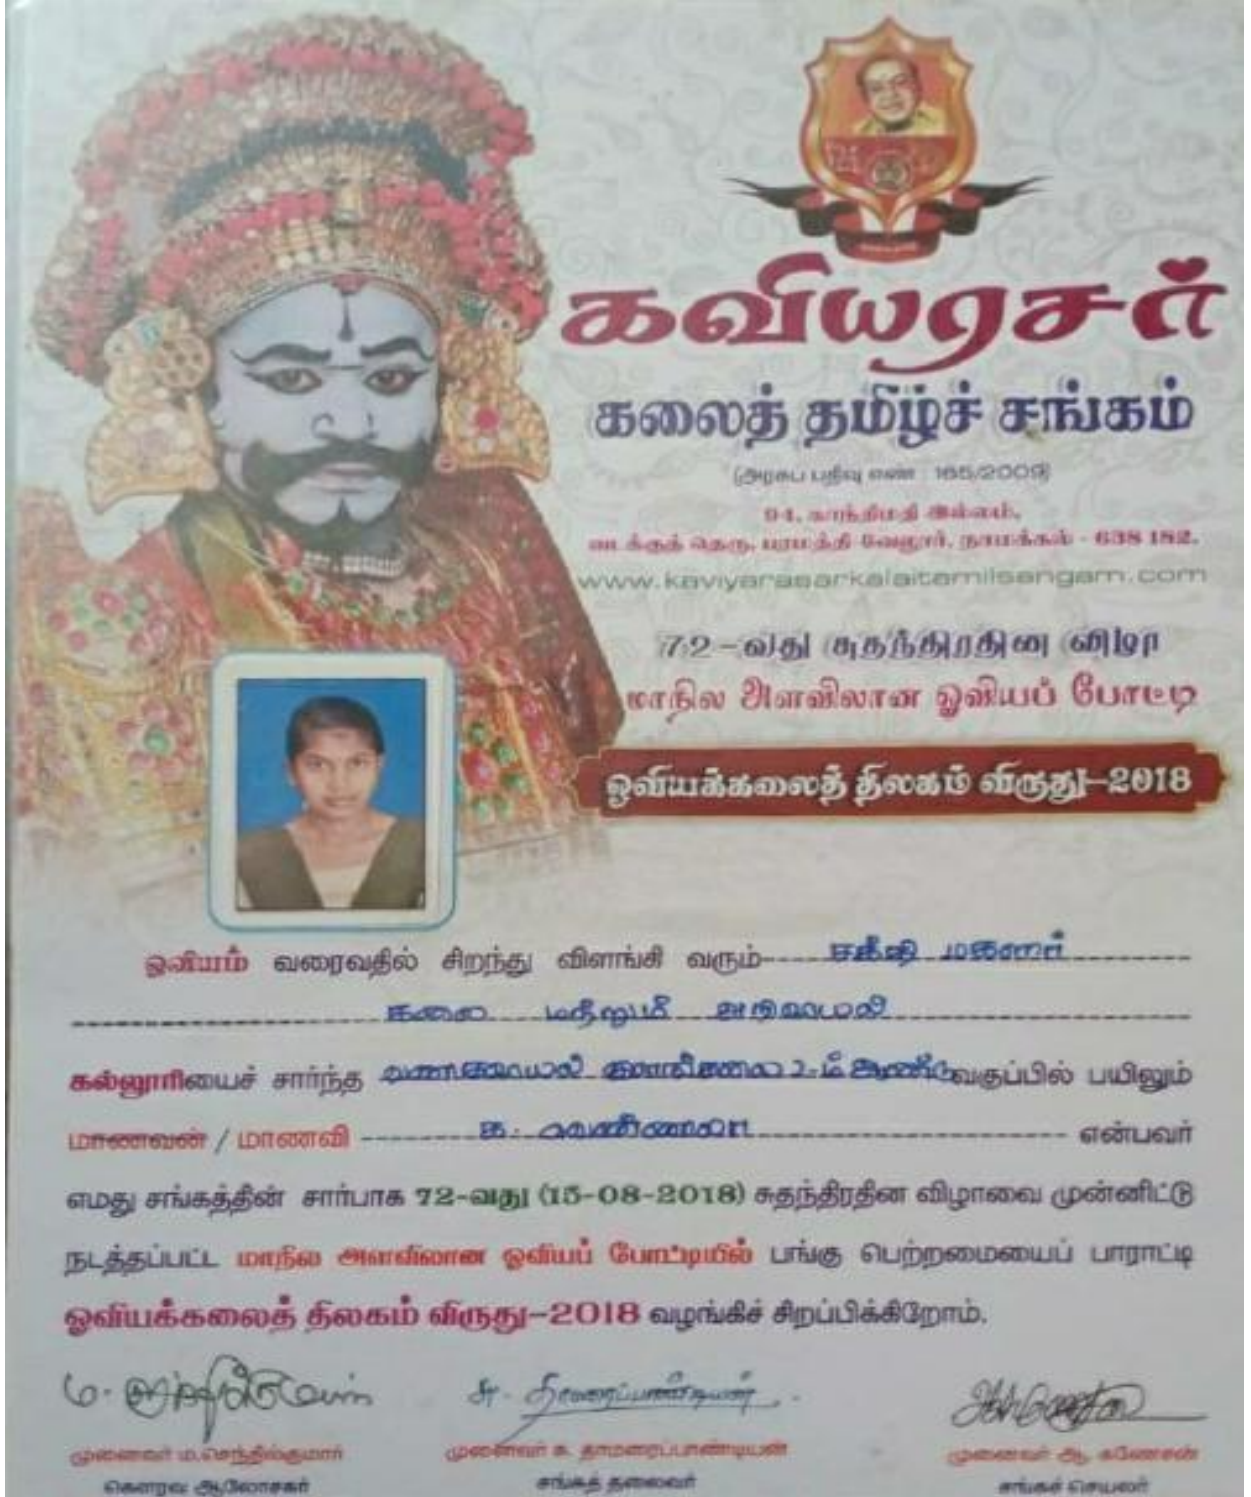 கவியரசர்
கலைத் தமிழ்ச் சங்கம்
(அரசு பதிவு எண் : 165/2009)
94, காந்திமதி இல்லம்,
வடக்குத் தெரு, பரமத்தி வேலூர், நாமக்கல் - 638 182.
www.kaviyarasarkalaitamilsangam.com
72-வது சுதந்திரதின விழா
மாநில அளவிலான ஓவியப் போட்டி
ஓவியக்கலைத் திலகம் விருது-2018
ஓவியம் வரைவதில் சிறந்து விளங்கி வரும் மகளிர்
கலை மற்றும் அறிவியல்
கல்லூரியைச் சார்ந்த இளங்கலை 2-ம் ஆண்டு வகுப்பில் பயிலும்
மாணவன் / மாணவி க. வெண்ணிலா என்பவர்
எமது சங்கத்தின் சார்பாக 72-வது (15-08-2018) சுதந்திரதின விழாவை முன்னிட்டு
நடத்தப்பட்ட மாநில அளவிலான ஓவியப் போட்டியில் பங்கு பெற்றமையைப் பாராட்டி
ஓவியக்கலைத் திலகம் விருது-2018 வழங்கிச் சிறப்பிக்கிறோம்.
முனைவர் ம.செந்தில்குமார் முனைவர் சு. தாமரைப்பாண்டியன் முனைவர் ஆ. கணேசன்
கௌரவ ஆலோசகர் சங்கத் தலைவர் சங்கச் செயலர்